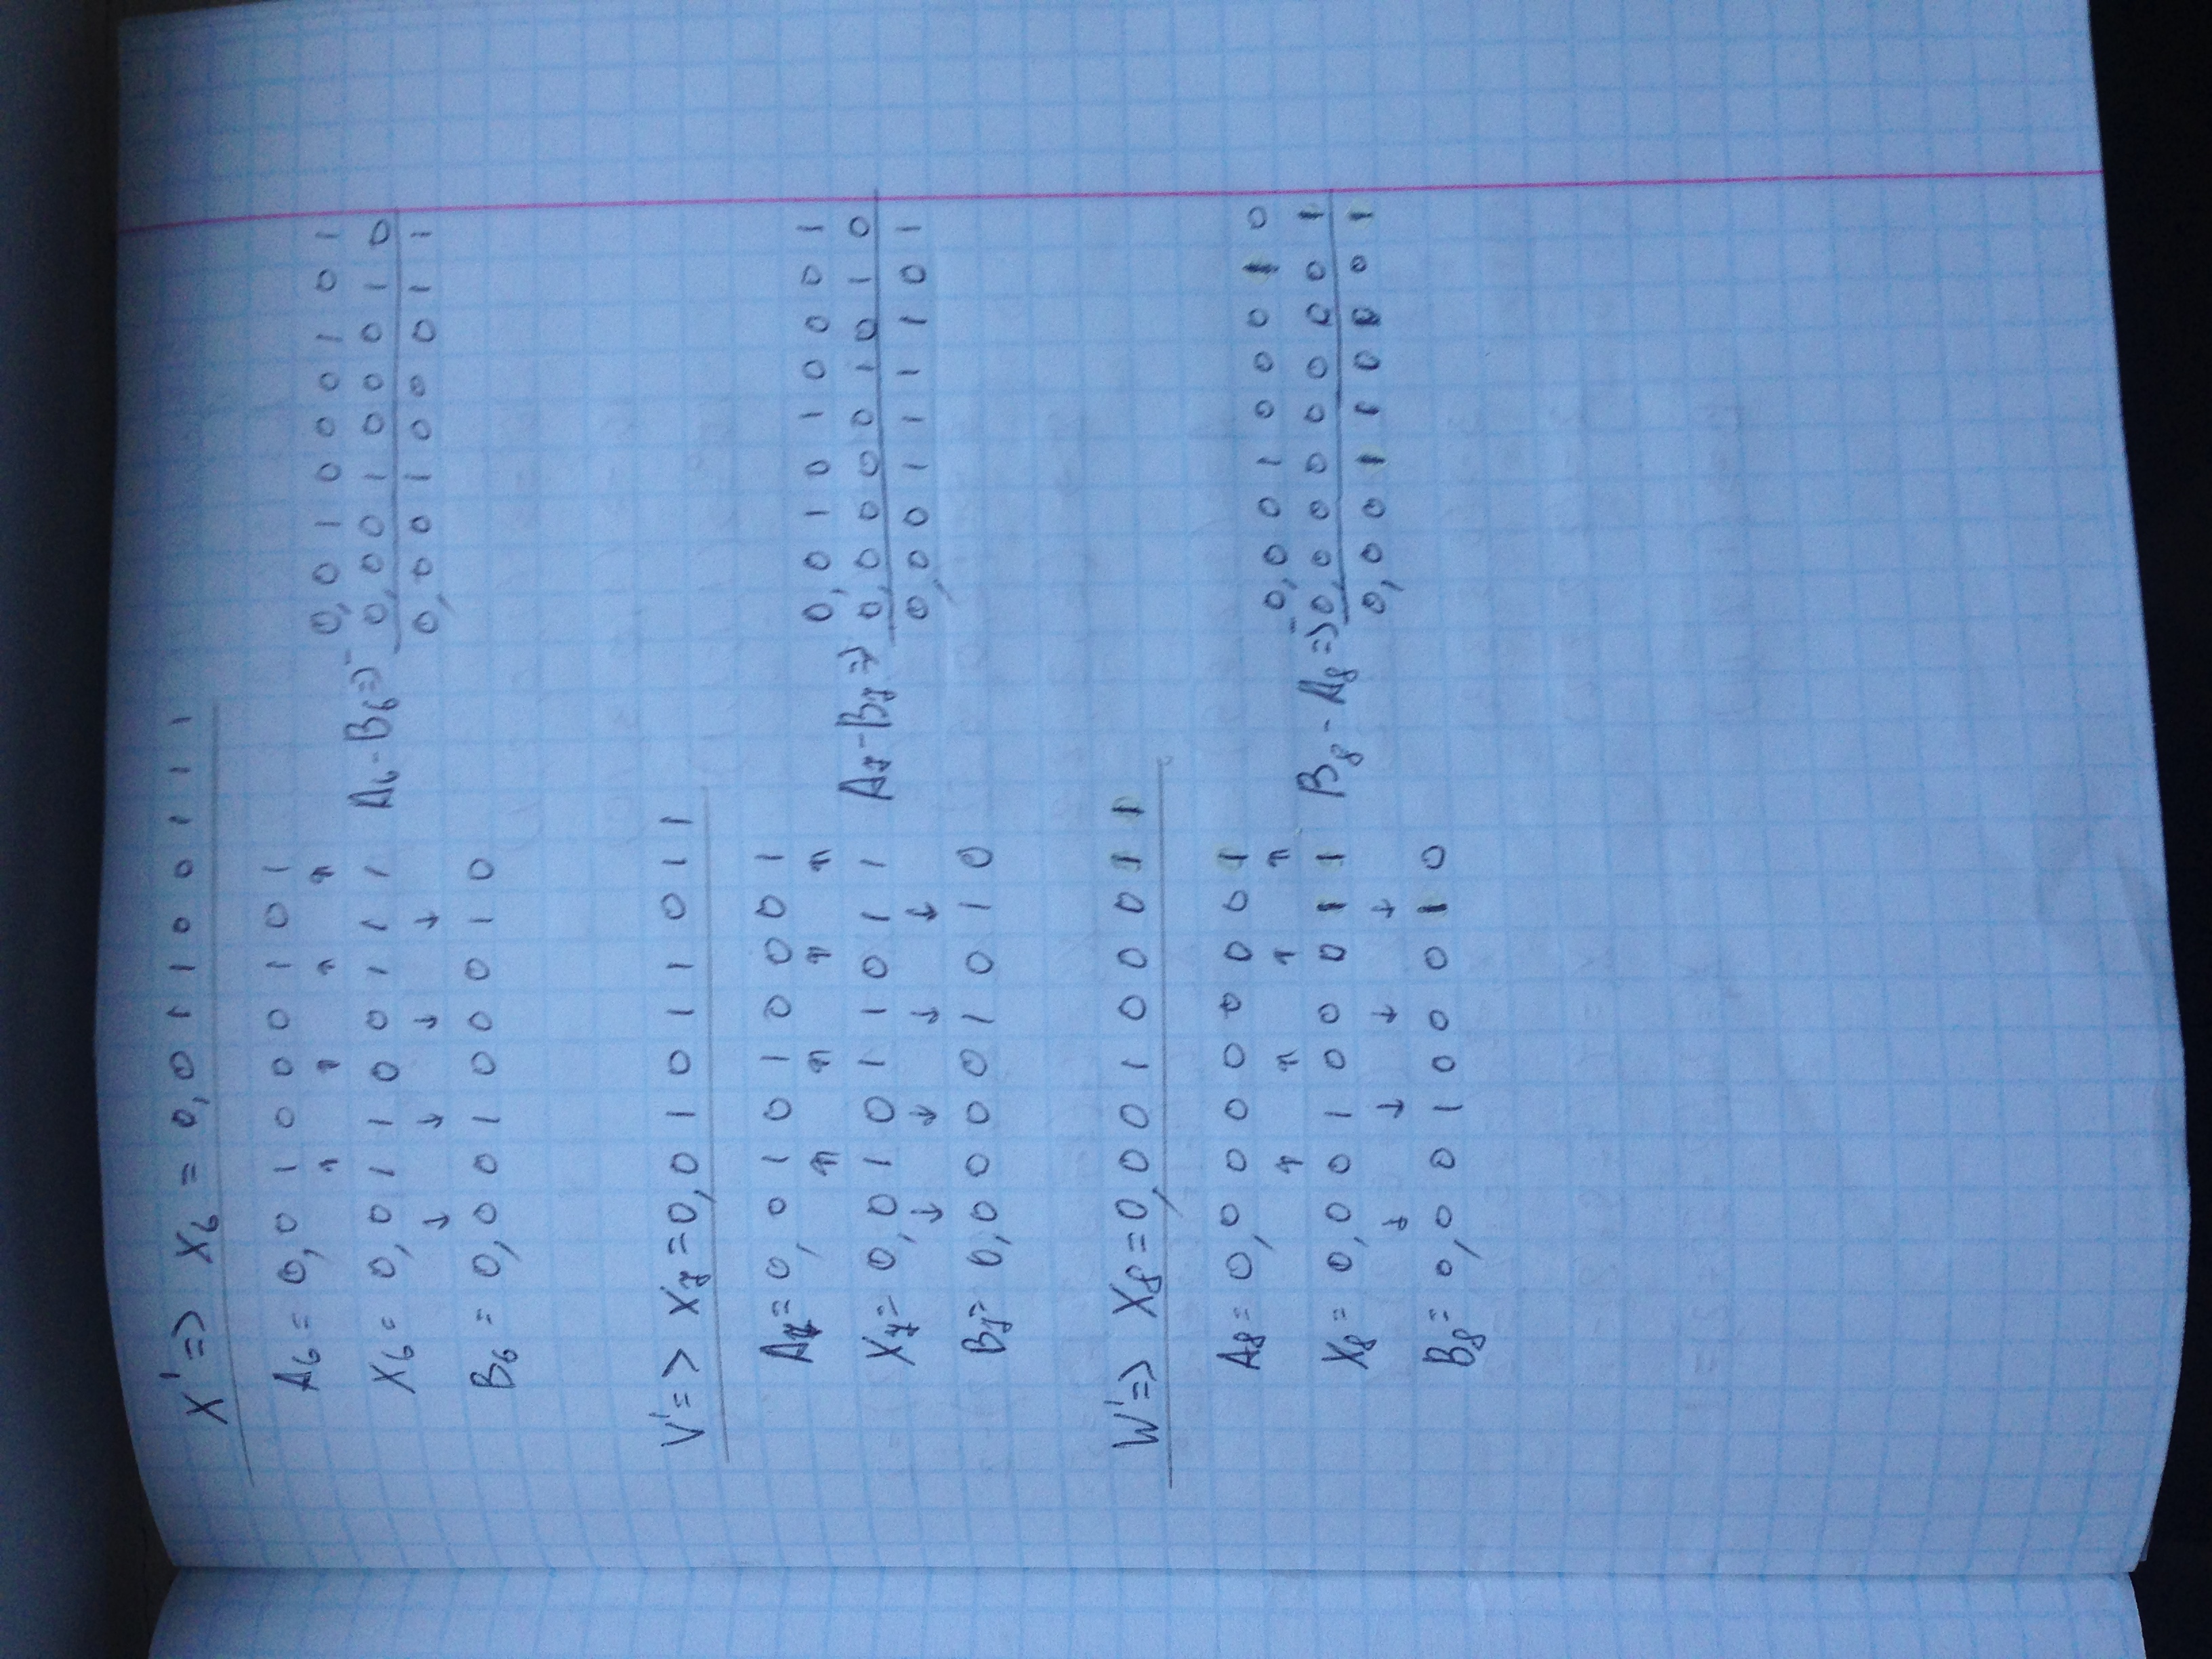 X' => X6 = 0,01100111
A6 = 0,01000101
X6 = 0,01100111
B6 = 0,00100010
A6 - B6 =>
- 0,01000101
0,00100010
0,00100011
V' => X7 = 0,01011011
A7 = 0,01010001
X7 = 0,01011011
B7 = 0,00001010
A7 - B7 =>
0,01010001
0,00001010
0,00111101
W' => X8 = 0,00100011
A8 = 0,00000001
X8 = 0,00100011
B8 = 0,00100010
B8 - A8 =>
- 0,00100010
0,00000001
0,00110001